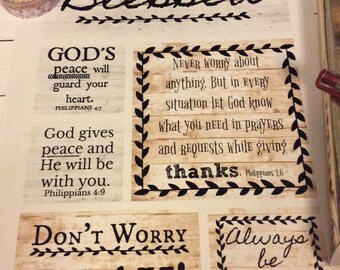 Blessed
GOD'S
peace will
guard your
heart.
PHILIPPIANS 4:7
God gives
peace and
He will be
with you.
Philippians 4:9
NEVER WORRY ABOUT
ANYTHING. BUT IN EVERY
SITUATION LET GOD KNOW
WHAT YOU NEED IN PRAYERS
AND REQUESTS WHILE GIVING
thanks. Philippians 4:6
DON'T WORRY
Always
be